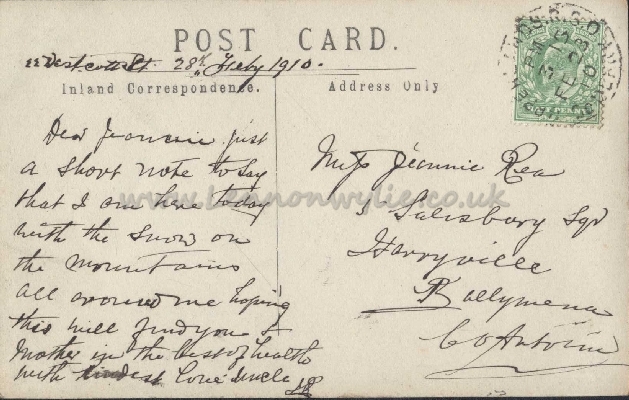 POST CARD.
28th Feby 1910.
Inland Correspondence.
Address Only
Dear Jeannie just
a short note to say
that I am here today
with the snow on
the mountains
all around me hoping
this will find you &
Mother in the best of health
with kindest love Uncle
Miss Jeannie Rea
Salisbury Sqr
Harryville
Ballymena
Co Antrim
www.Lennonwylie.co.uk